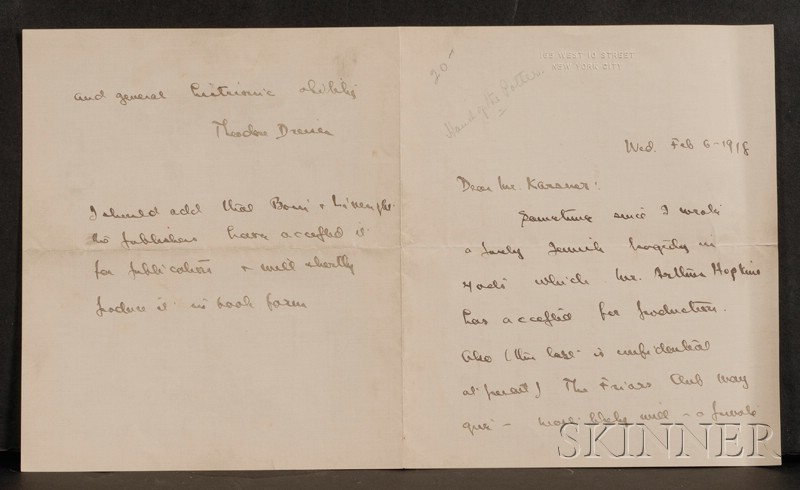 and general histrionic ability
Theodore Dreiser
I should add that Boni + Liveright
the publishers have accepted it
for publication + will shortly
produce it in book form
20-
Hand of the Potter
165 WEST 10 STREET
NEW YORK CITY
Wed. Feb 6-1918
Dear Mr. Karsner:
Sometime since I wrote
a Jewish tragedy in
which Mr. Arthur Hopkins
has accepted for production.
Also (this last is confidential
at present) The Friars Club may
give - most likely will - a private
SKINNER